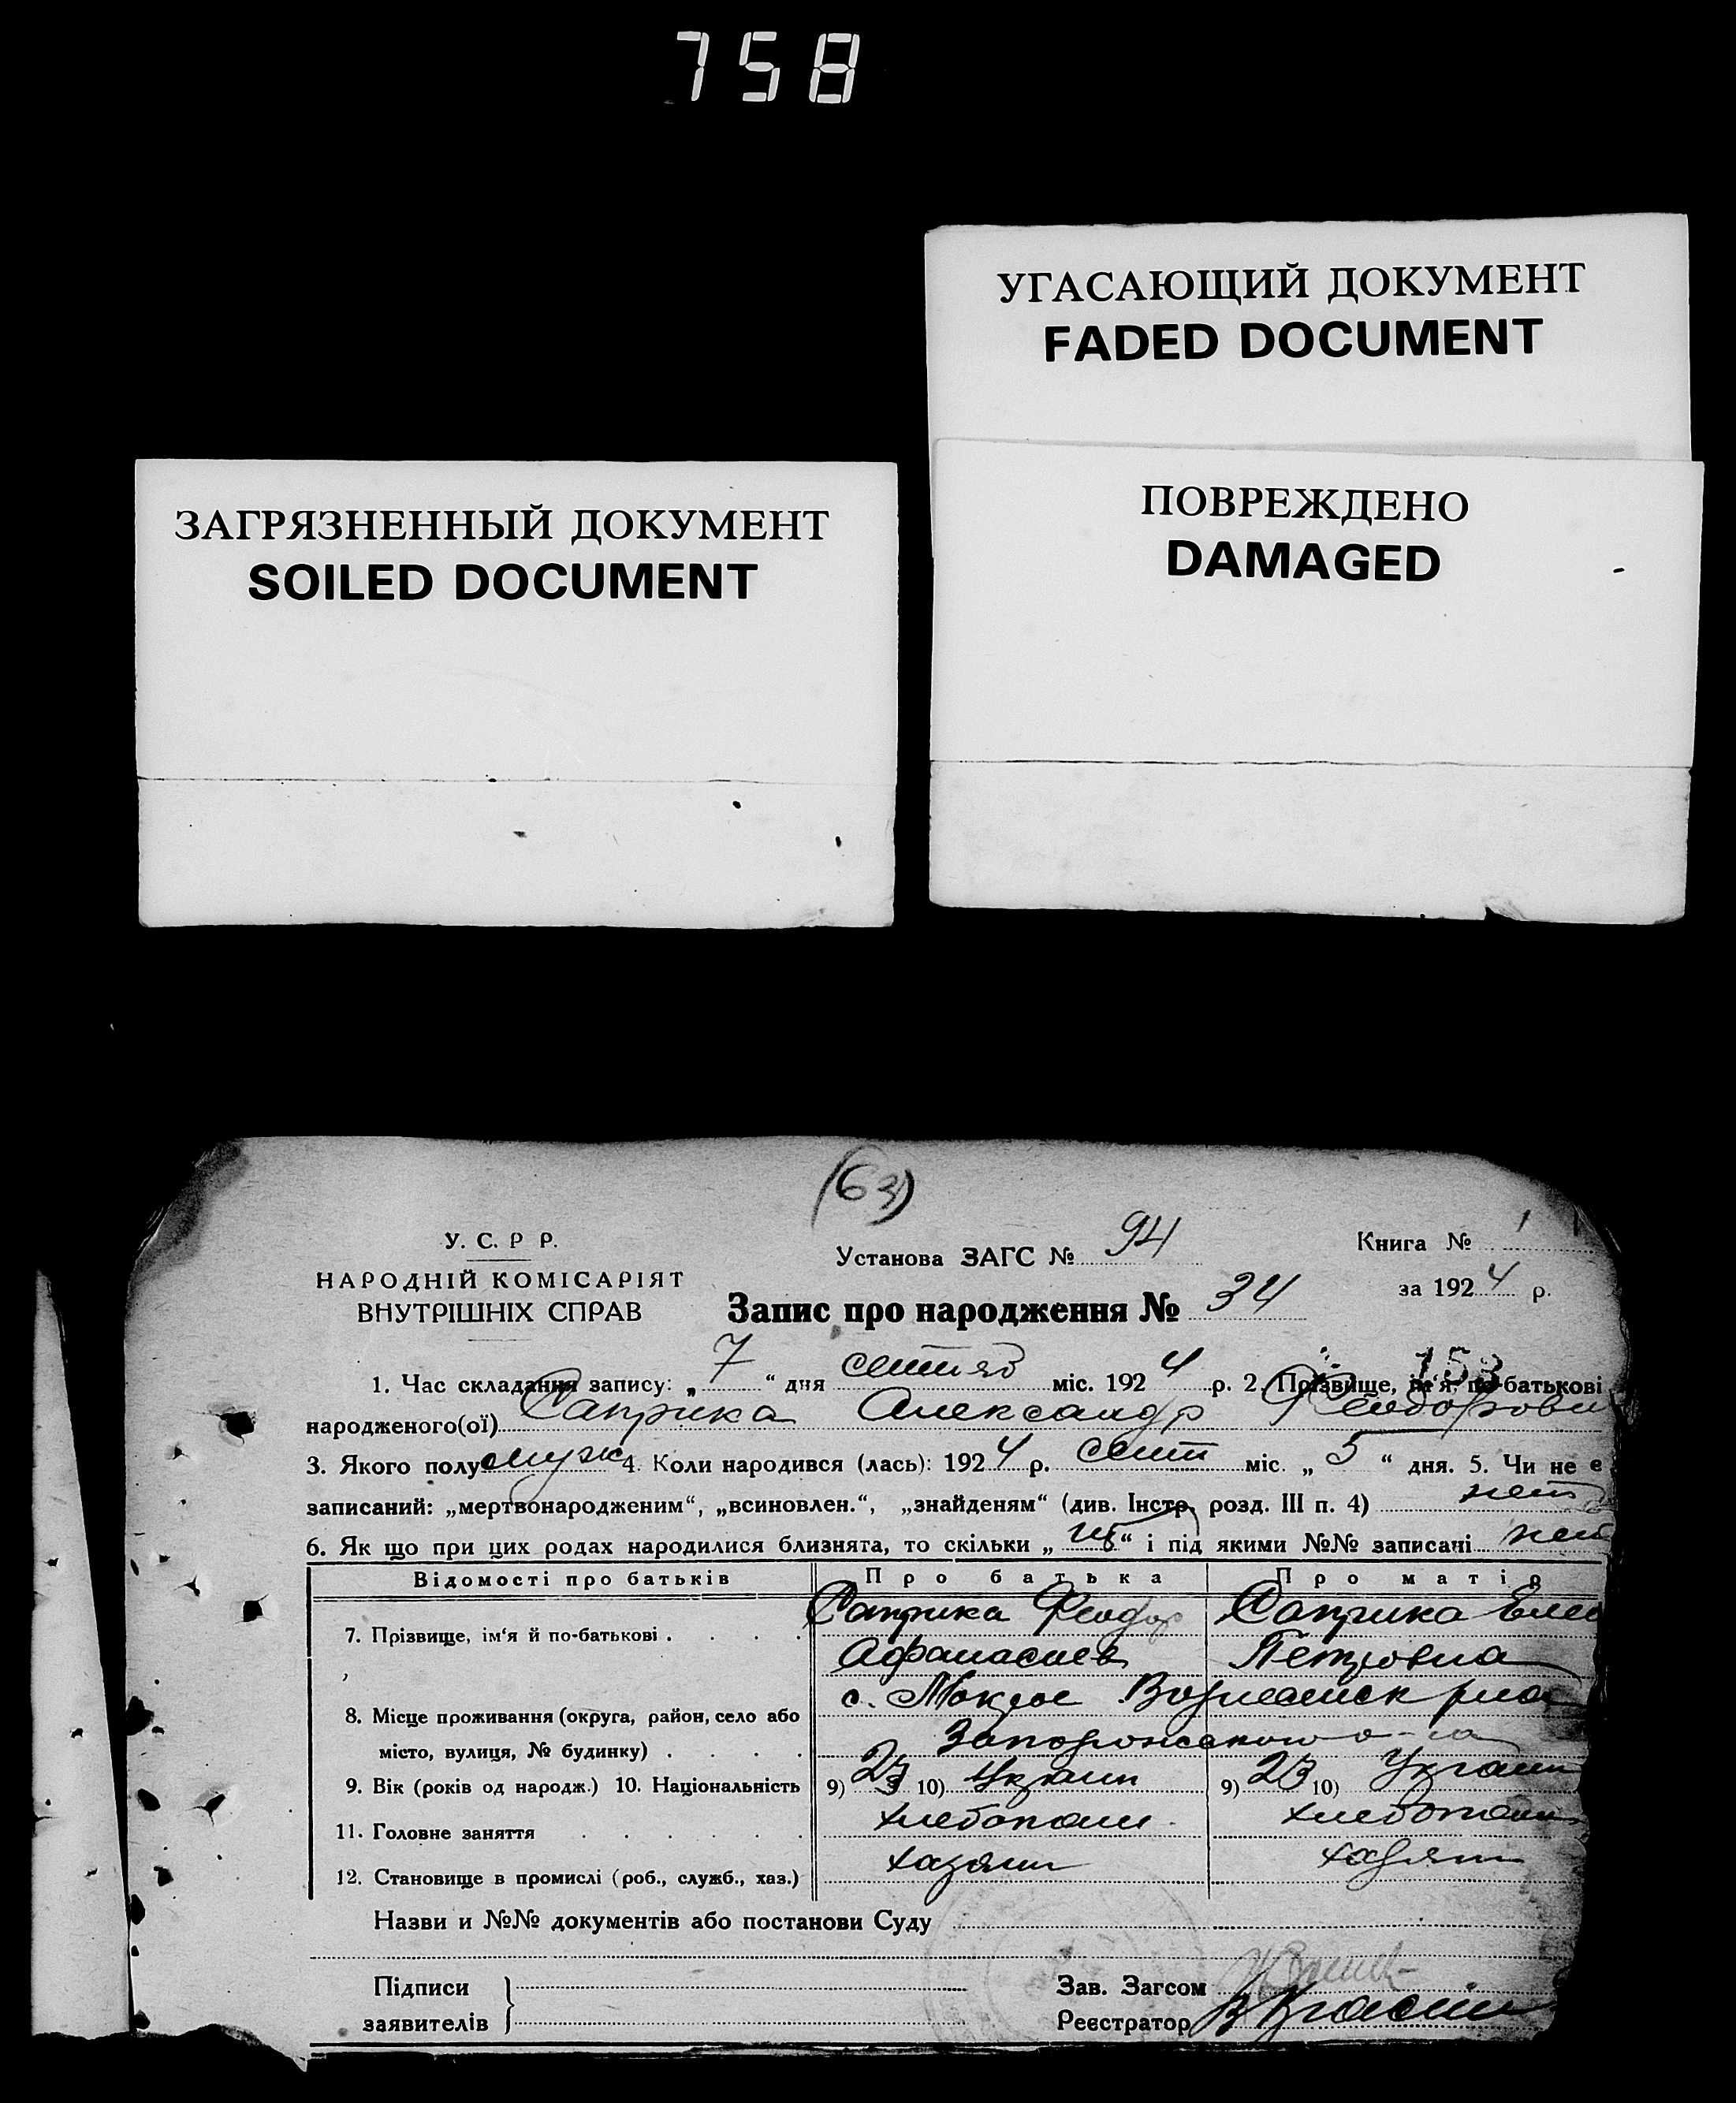 758
УГАСАЮЩИЙ ДОКУМЕНТ
FADED DOCUMENT
ЗАГРЯЗНЕННЫЙ ДОКУМЕНТ
SOILED DOCUMENT
ПОВРЕЖДЕНО
DAMAGED
(63)
У. С. Р Р.
НАРОДНІЙ КОМІСАРІЯТ
ВНУТРІШНІХ СПРАВ
Установа ЗАГС № 94
Книга № 1
за 1924 р.
Запис про народження № 34
153
1. Час складання запису: „7“ дня міс. 1924 р. 2. Прізвище, ім'я, по-батькові
народженого(ої) Саприка Александр Феодорови
3. Якого полу муж 4. Коли народився (лась): 1924 р. сент міс. „5“ дня. 5. Чи не є
записаний: „мертвонародженим“, „всиновлен.“, „знайденям“ (див. Інстр. розд. III п. 4) нет
6. Як що при цих родах народилися близнята, то скільки „ “ і під якими №№ записані нет
Відомості про батьків Про батька Про матір
7. Прізвище, ім'я й по-батькові . . . . Саприка Феодор Саприка Елен
Афанасиев Петровна
8. Місце проживання (округа, район, село або с. Мокрое Вознесенск
місто, вулиця, № будинку) . . . .
9. Вік (років од народж.) 10. Національність 9) 23 10) Украин 9) 23 10) Украин
11. Головне заняття . . . . . . хлебопаш хлебопаш
12. Становище в промислі (роб., служб., хаз.) хазяин хазяин
Назви и №№ документів або постанови Суду
Підписи
заявителів
Зав. Загсом
Реєстратор